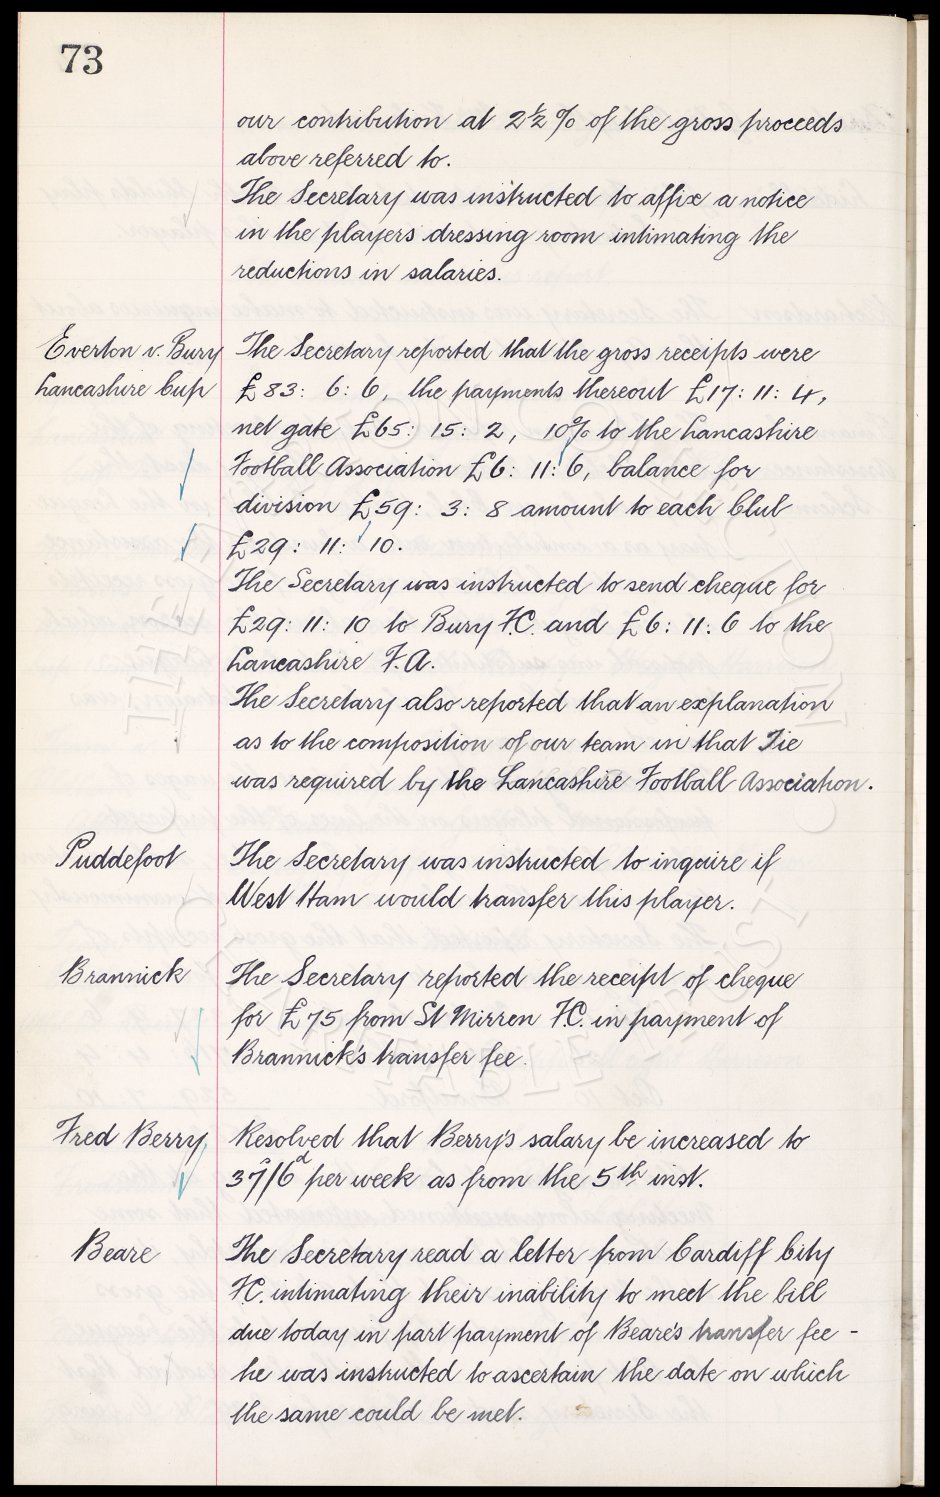 73
our contribution at 2½% of the gross proceeds
above referred to.
The Secretary was instructed to affix a notice
in the players dressing room intimating the
reductions in salaries.
Everton v. Bury
Lancashire Cup
The Secretary reported that the gross receipts were
£83: 6: 6, the payments thereout £17: 11: 4,
net gate £65: 15: 2, 10% to the Lancashire
Football Association £6: 11: 6, balance for
division £59: 3: 8 amount to each Club
£29: 11: 10.
The Secretary was instructed to send cheque for
£29: 11: 10 to Bury F.C. and £6: 11: 6 to the
Lancashire F.A.
The Secretary also reported that an explanation
as to the composition of our team in that Tie
was required by the Lancashire Football Association.
Puddefoot
The Secretary was instructed to inquire if
West Ham would transfer this player.
Brannick
The Secretary reported the receipt of cheque
for £75 from St Mirren F.C. in payment of
Brannick's transfer fee.
Fred Berry
Resolved that Berry's salary be increased to
37s/6d per week as from the 5th inst.
Beare
The Secretary read a letter from Cardiff City
F.C. intimating their inability to meet the bill
due today in part payment of Beare's transfer fee -
he was instructed to ascertain the date on which
the same could be met.